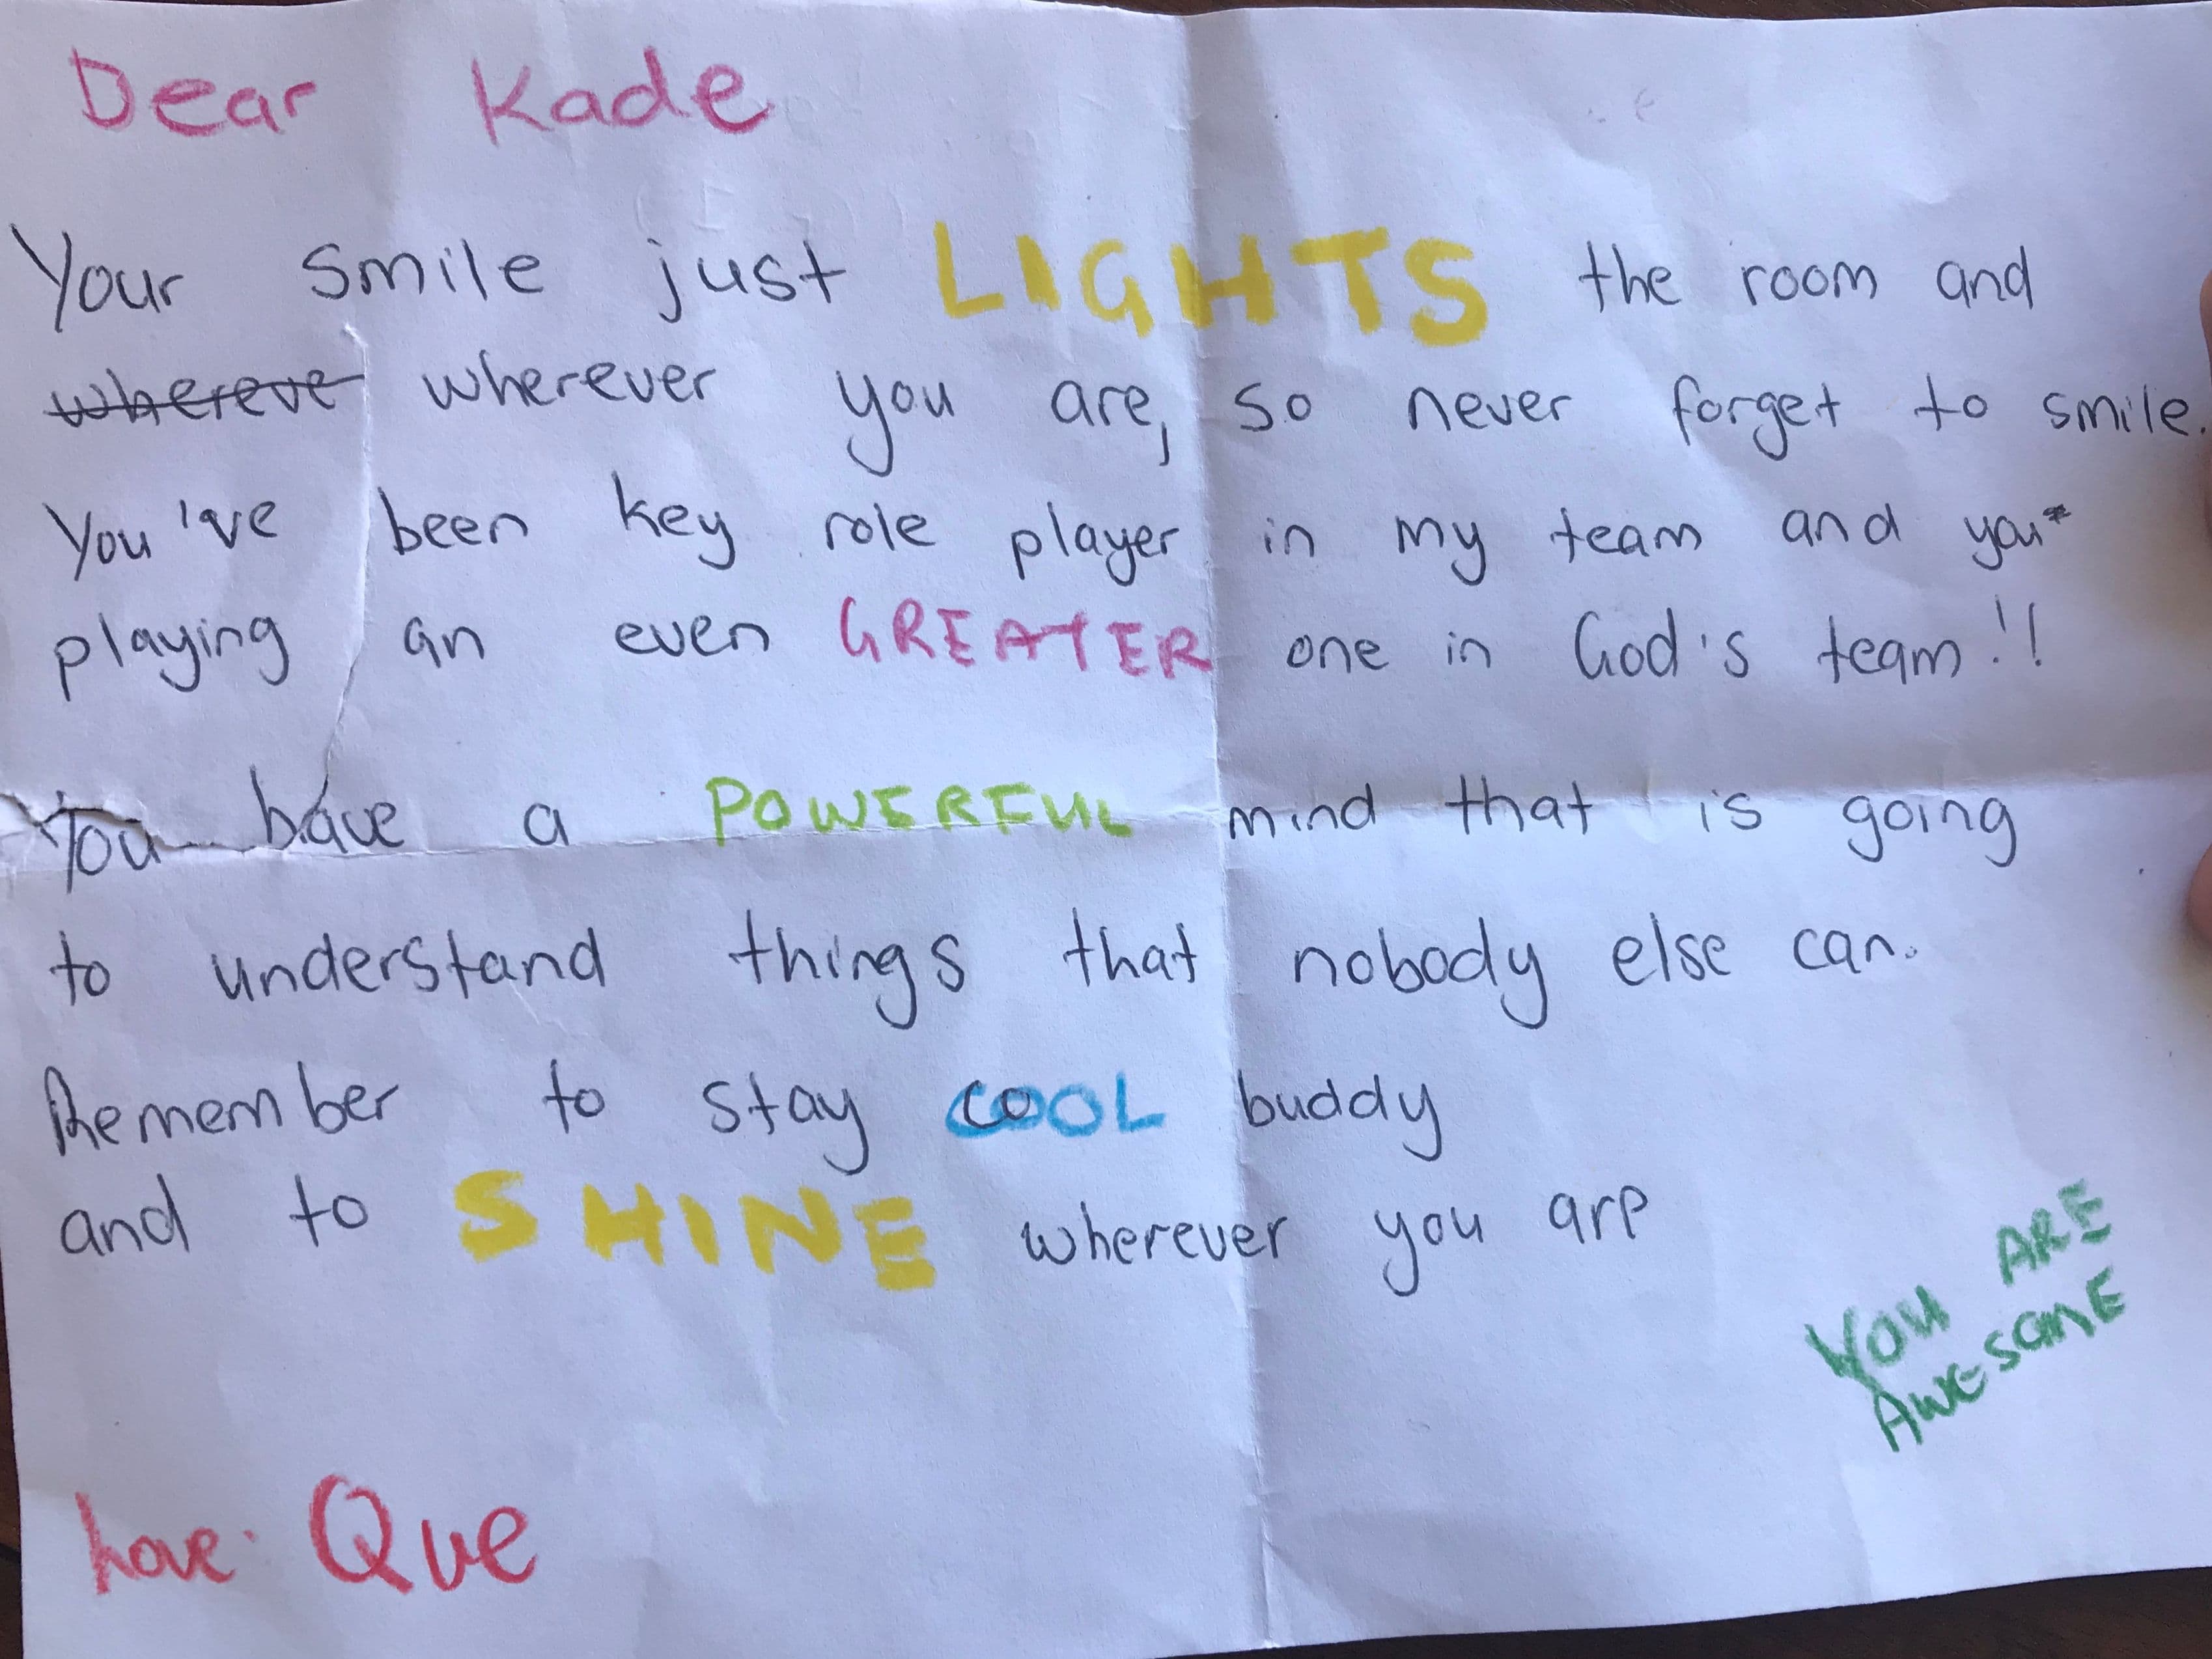 Dear Kade
Your smile just LIGHTS the room and
whereve wherever you are, so never forget to smile.
You've been key role player in my team and you*
playing an even GREATER one in God's team!!
You have a POWERFUL mind that is going
to understand things that nobody else can.
Remember to stay COOL buddy
and to SHINE wherever you are
YOU ARE
AWESOME
Love. Que